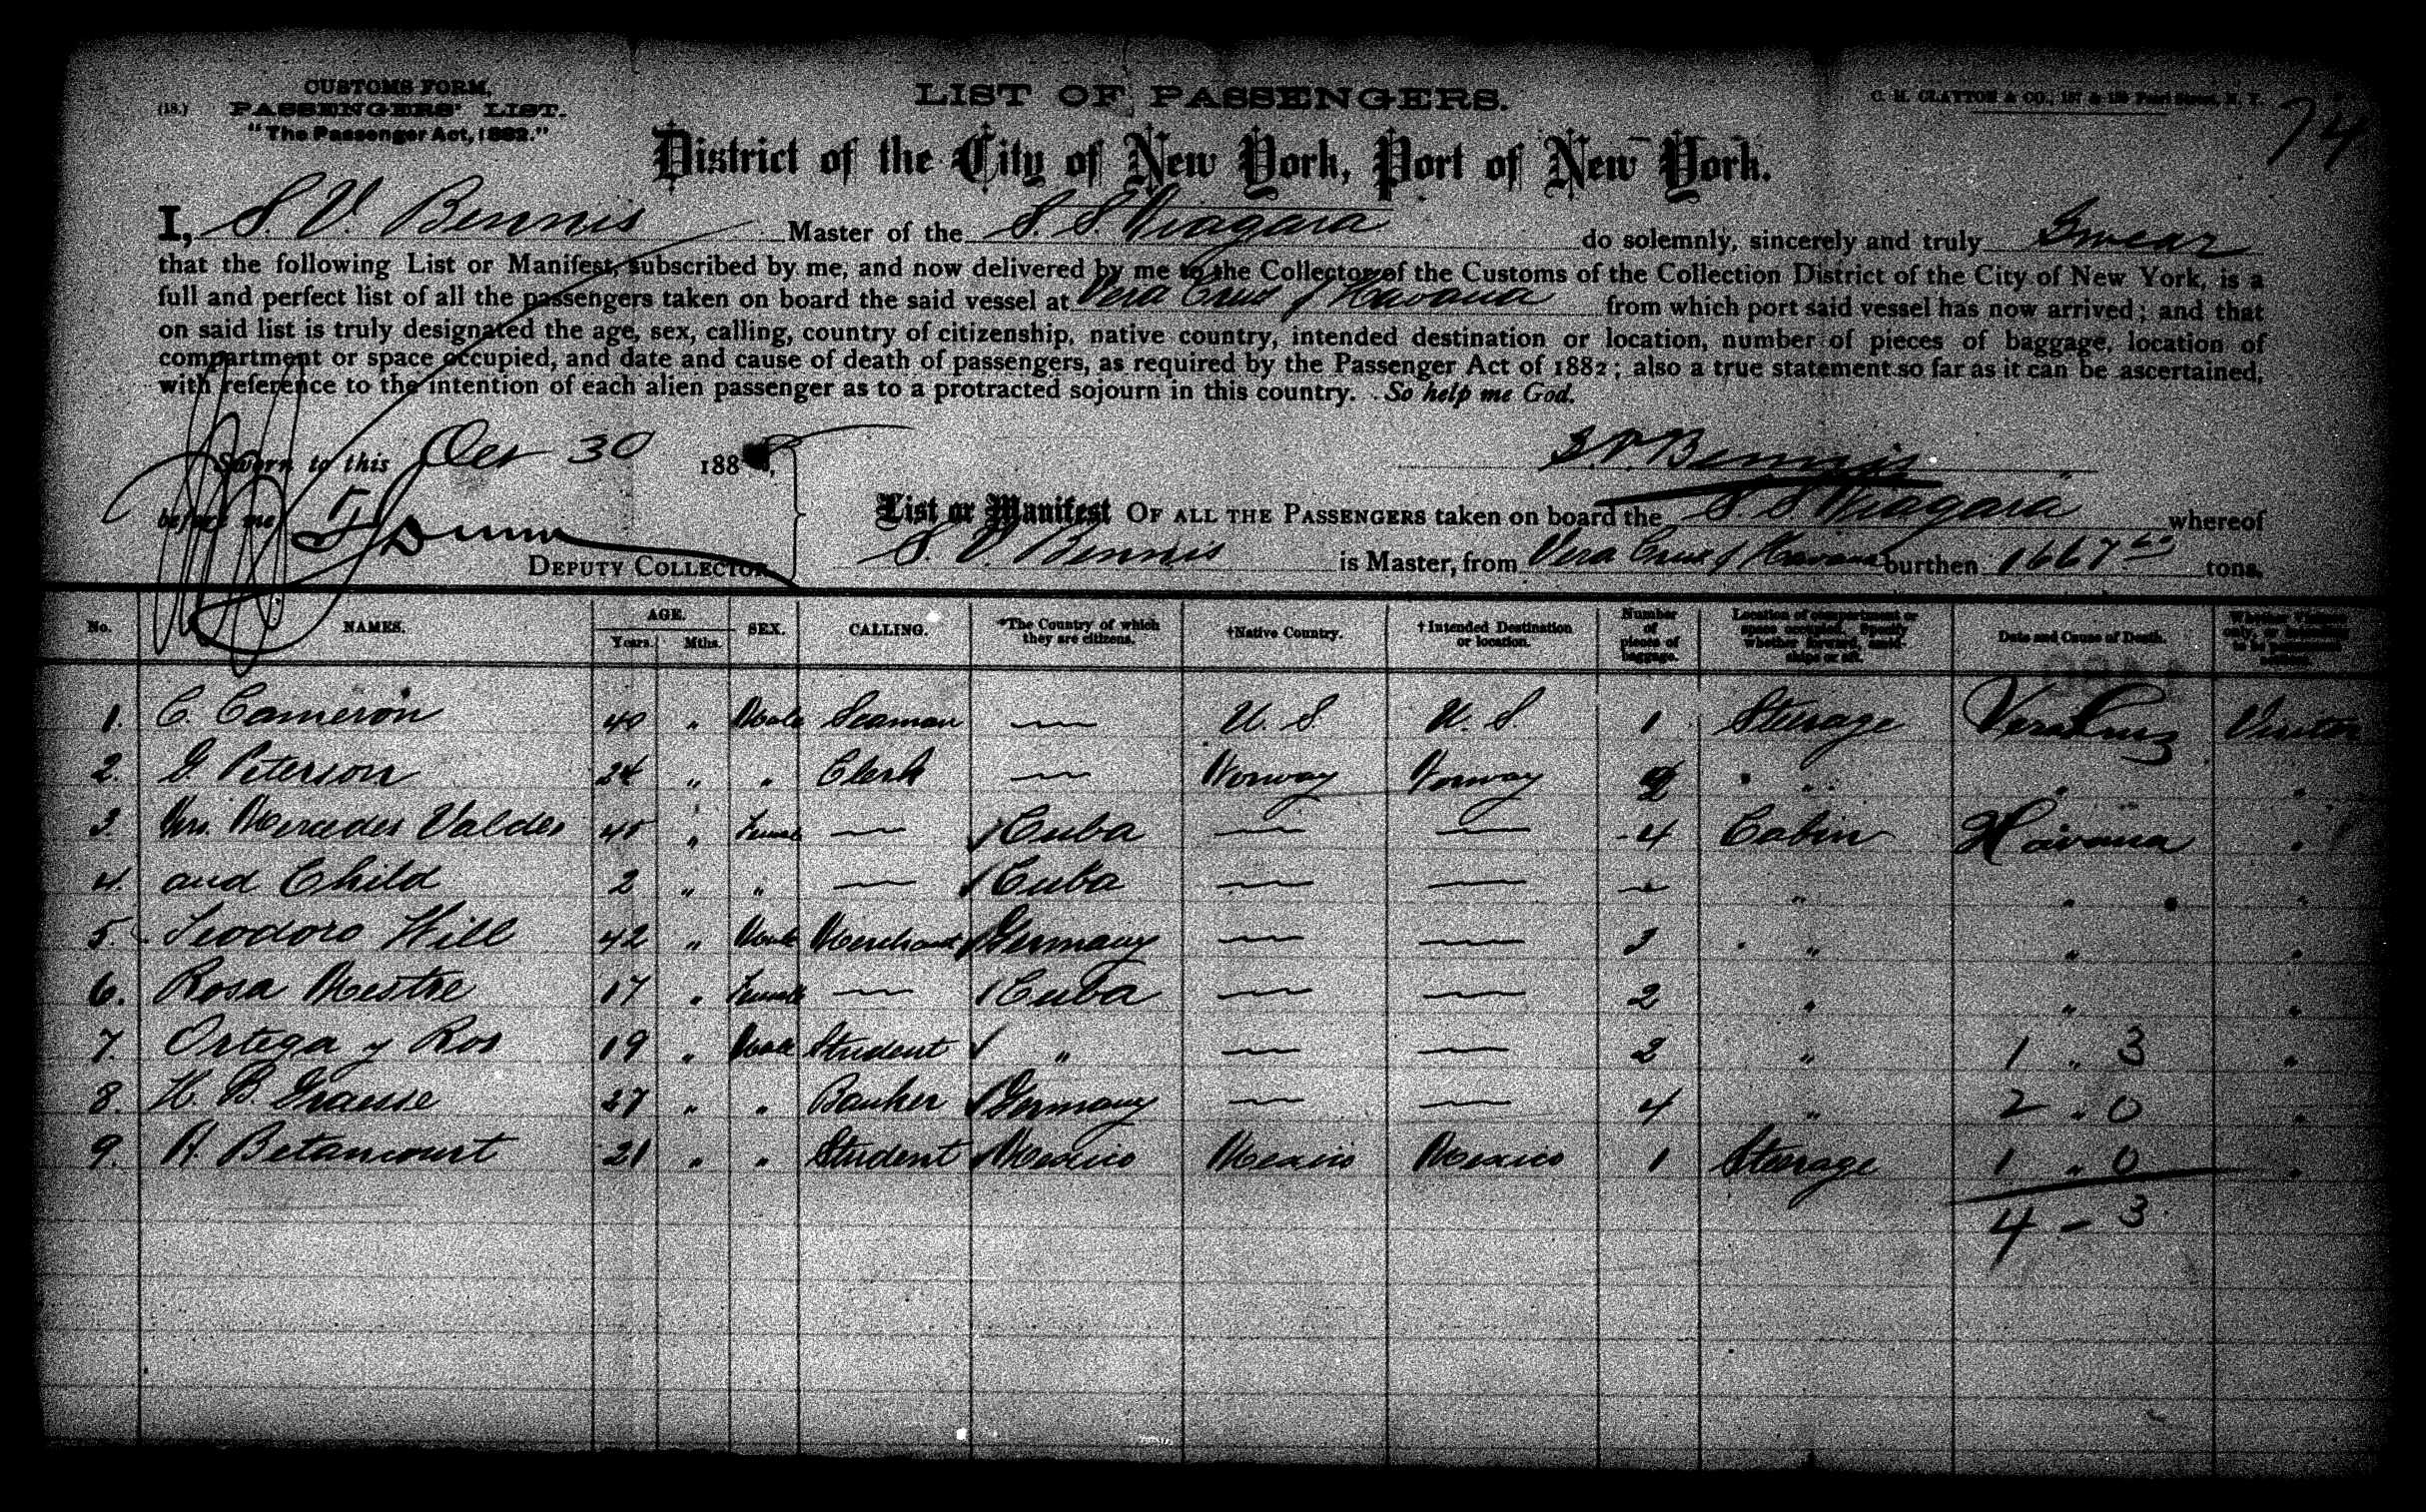 CUSTOMS FORM.
(18.) PASSENGERS' LIST.
"The Passenger Act, 1882."
LIST OF PASSENGERS.
C. H. CLAYTON & CO., 157 & 159 Pearl Street, N. Y.
74
District of the City of New York, Port of New York.
I, S. V. Bennis Master of the S. S. Niagara do solemnly, sincerely and truly Swear
that the following List or Manifest, subscribed by me, and now delivered by me to the Collector of the Customs of the Collection District of the City of New York, is a
full and perfect list of all the passengers taken on board the said vessel at Vera Cruz & Havana from which port said vessel has now arrived; and that
on said list is truly designated the age, sex, calling, country of citizenship, native country, intended destination or location, number of pieces of baggage, location of
compartment or space occupied, and date and cause of death of passengers, as required by the Passenger Act of 1882; also a true statement so far as it can be ascertained,
with reference to the intention of each alien passenger as to a protracted sojourn in this country. So help me God.
Sworn to this 30 188
S. V. Bennis
before me
DEPUTY COLLECTOR
List or Manifest OF ALL THE PASSENGERS taken on board the S S Niagara whereof
S. V. Bennis is Master, from Vera Cruz & Havana burthen 1667 tons.
No. NAMES. AGE. Years. Mths. SEX. CALLING. *The Country of which they are citizens. †Native Country. †Intended Destination or location. Number of pieces of baggage. Location of compartment or space occupied. Date and Cause of Death.
1. C. Cameron 40 " Male Seaman — U. S. U. S. 1 Steerage Vera Cruz Visitor
2. G. Peterson 24 " " Clerk — Norway Norway 2 " " "
3. Mrs. Mercedes Valdes 45 " Female — Cuba — — 4 Cabin Havana "
4. and Child 2 " " — Cuba — — — " " "
5. Teodoro Will 42 " Male Merchant Germany — — 3 " " "
6. Rosa Mestre 17 " Female — Cuba — — 2 " " "
7. Ortega y Ros 19 " Male Student " — — 2 " 1 " 3 "
8. H. B. Graesse 27 " " Banker Germany — — 4 " 2 " 0 "
9. A. Betancourt 21 " " Student Mexico Mexico Mexico 1 Steerage 1 " 0 "
4 - 3